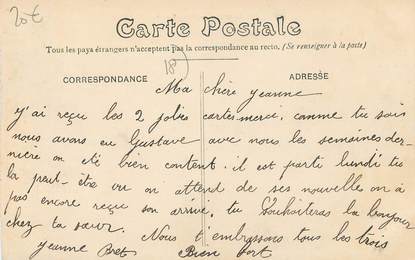 20€
Carte Postale
Tous les pays étrangers n'acceptent pas la correspondance au recto. (Se renseigner à la poste)
18)
CORRESPONDANCE
ADRESSE
Ma chère yeanne
y'ai reçu les 2 jolies cartes merci, comme tu sais
nous avons eu Gustave avec nous les semaines der-
nière on été bien content. il est parti lundi tu
la peut-être vu on attend de ses nouvelles on à
pas encore reçu son arrivé. tu souhaiteras la bonjour
chez ta sœur. Nous t'embrassons tous les trois
yeanne Bret Bien fort